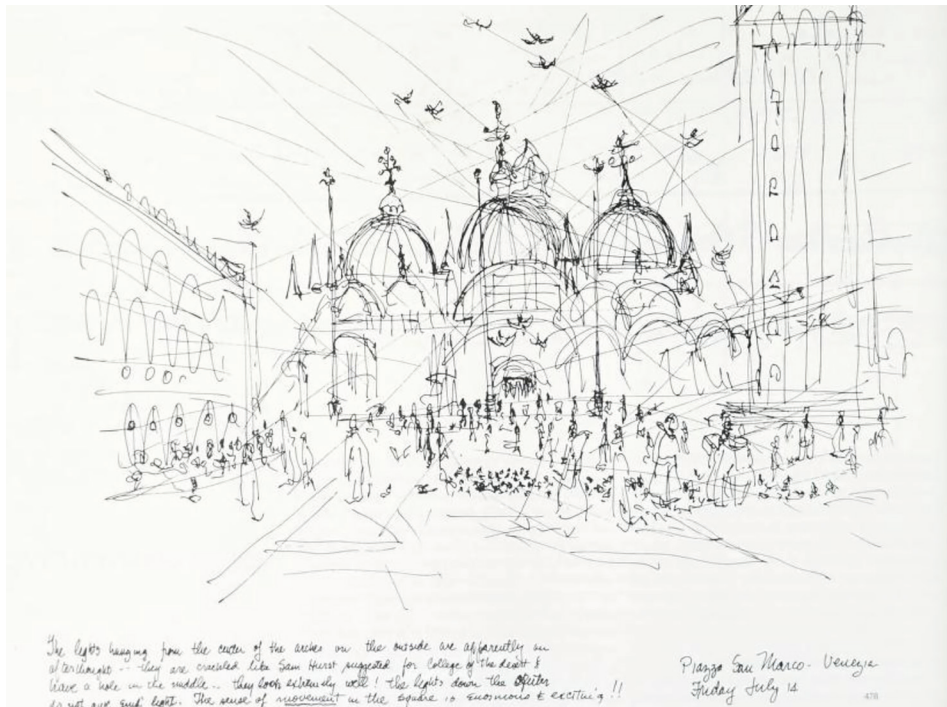 The lights hanging from the center of the arches on the outside are apparently an
afterthought -- they are crackled like Sam Hurst suggested for College of the desert &
have a hole in the middle.. they look extremely well! The lights down the
do not give light. The sense of movement in the square is enormous & exciting!!
Piazza San Marco - Venezia
Friday July 14
478